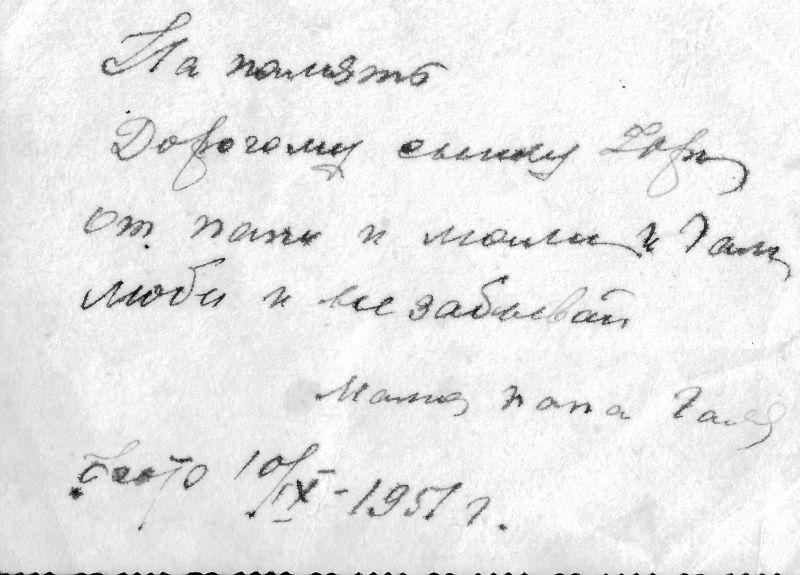 На память
Дорогому сынку Юры
от папы и мамы и Гали
люби и не забывай
мама папа Галя
фото 10/IX-1951 г.